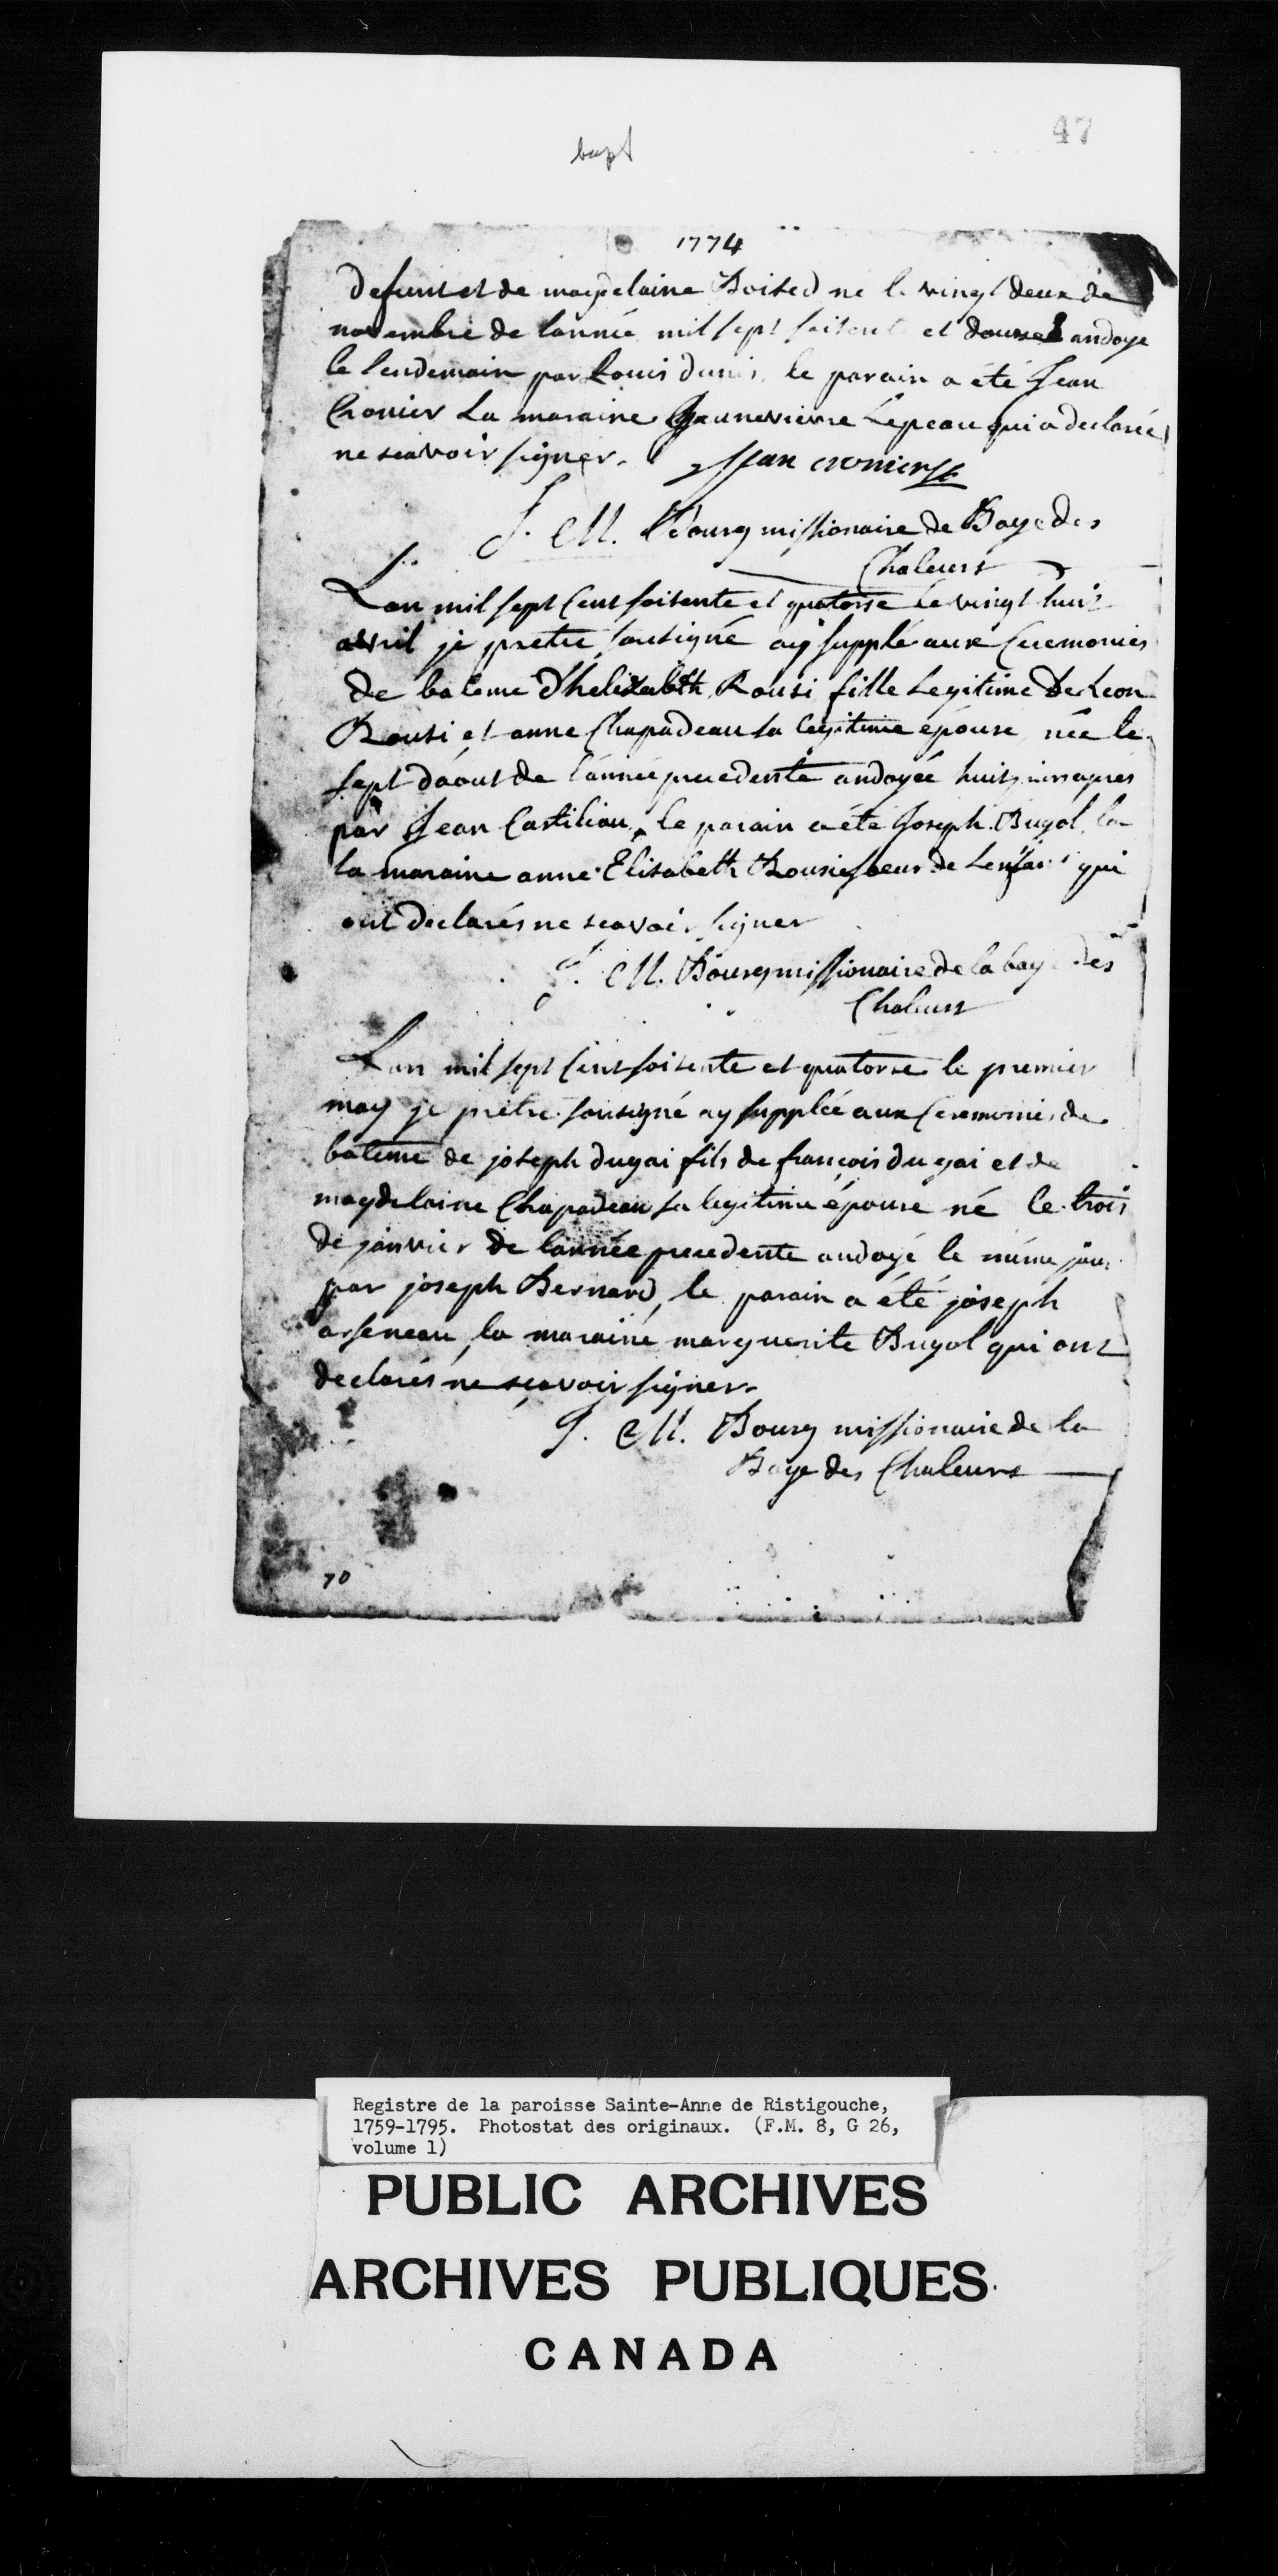 47
bapt
1774
defunt et de magdelaine Boised né le vingt deux de
novembre de lannée mil sept soisente et douse andoyé
le lendemain par Louis denis le parain a été Jean
Cronier La maraine Geunevievre Lepeau qui a declarée
ne scavoir signer. Jean cronier
J. M. Bourg missionaire de Baye des
Chaleurs
Lan mil sept Cent soisente et quatorse Le vingt huit
avril je pretre sousigné ay supplé aux Ceremonies
de bateme d'helizabeth Rousi fille Legitime De Leon
Rousi et anne Chapadeau sa legitime épouse née le
sept d'aout de l'année precedente andoyée huit jours apres
par Jean Castiliou, le parain a été Joseph Bugol, la
la maraine anne Elisabeth Rousi soeur de Lenfant qui
ont declarés ne scavoir signer
J. M. Bourg missionaire de la baye des
Chaleurs
Lan mil sept Cent soisente et quatorse le premier
may je prêtre sousigné ay supplée aux Ceremonies de
bateme de joseph dugai fils de françois dugai et de
magdelaine Chapadeau sa legitime épouse né le trois
de janvier de lannée precedente andoyé le même jour
par joseph Bernard, le parain a été joseph
arseneau, la maraine marguerite Bugol qui ont
declarés ne sçavoir signer
J. M. Bourg missionaire de la
Baye des Chaleurs
70
Registre de la paroisse Sainte-Anne de Ristigouche,
1759-1795. Photostat des originaux. (F.M. 8, G 26,
volume 1)
PUBLIC ARCHIVES
ARCHIVES PUBLIQUES
CANADA